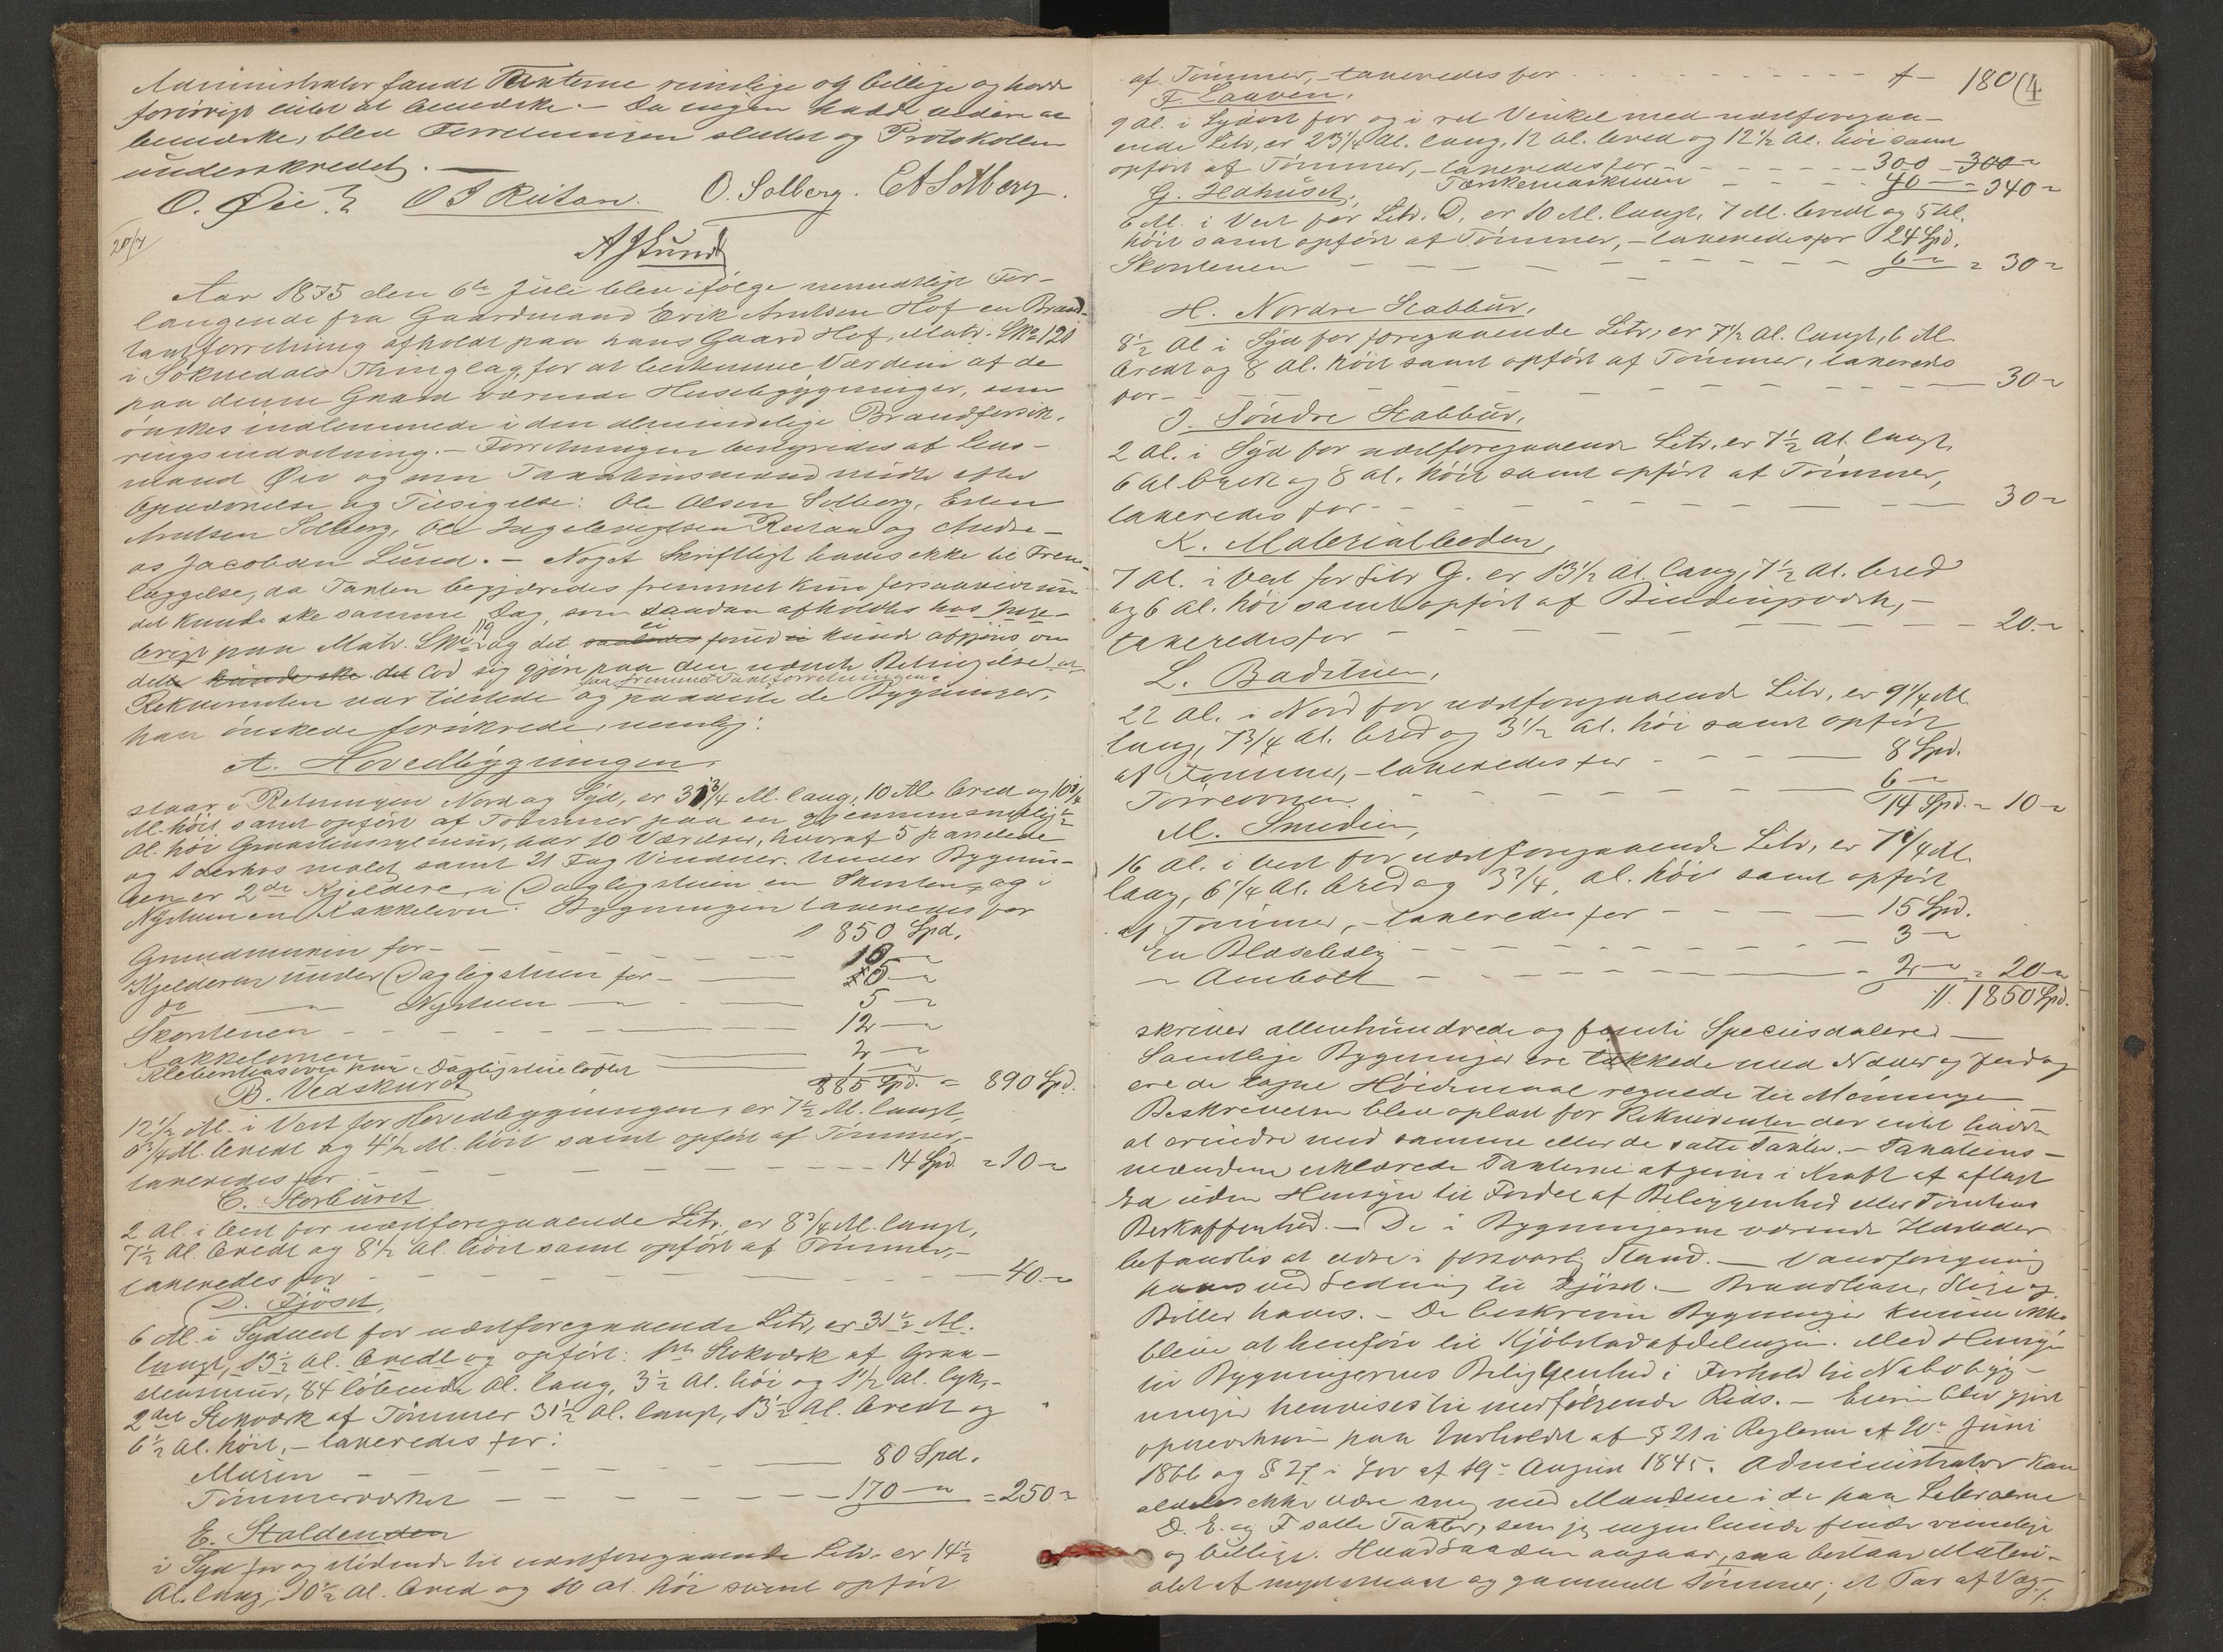 Administrator fandt Taxterne rimelige og billige og havde
forøvrigt intet at bemærke. – Da ingen havde videre at
bemærke, blev Forretningen sluttet og Protokollen
underskrevet. –
O. Øie O I Reitan. O. Solberg. E A Solberg.
A J Lund
20/7
Aar 1875 den 6te Juli blev ifølge mundtlige For-
langende fra Gaardmand Erik Arntsen Hof en Brand-
taxtforretning afholdt paa hans Gaard Hof, Matr. LNo 120
i Soknedals Thinglag, for at bestemme Værdien af de
paa denne Gaard værende Husebygninger, som
ønskes indlemmede i den almindelige Brandforsik-
ringsindretning. – Forretningen bestyredes af Lens-
mand Øie og som Taxationsmænd mødte efter
Opnævnelse og Tilsigelse: Ole Olsen Solberg, Esten
Arntsen Solberg, Ole Ingebrigtsen Reitan og Andre-
as Jacobsen Lund. – Noget Skriftligt havdes ikke til Frem-
læggelse, da Taxten begjæredes fremmet kun forsaavidt
det kunde ske samme Dag, som saadan afholdtes hos Inge-
brigt paa Matr. LNo 119 og det ei kunde afgjøres om
dette lod sig gjøre paa den nævnte Betingelse
paa fremmet Taxtforretningen.
Rekvirenten var tilstede og paaviste de Bygninger,
han ønskede forsikrede, nemlig:
A. Hovedbygningen,
staar i Retningen Nord og Syd, er 31 3/4 Al. lang, 10 Al. bred og 10 1/4
Al. høi samt opført af Tømmer paa en gjennemsnitlig 1/2
Al. høi Graastensgrundmur, har 10 Værelser, hvoraf 5 panelede
og derhos malet samt 21 Fag Vinduer. Under Bygnin-
gen er 2de Kjeldere, i Dagligstuen en Skorsten, og i
Nystuen en Kakkelovn. Bygningen taxeredes for
850 Spd.
Grundmuren for – – – 10 –
Kjelderen under Dagligstuen for – 5 –
do – Nystuen – 5 –
Skorstenen – – – 12 –
Kakkelovnen – 2 –
Klebersteensovn paa Dagligstueloftet 1 –
885 Spd. = 890 Spd.
B. Vedskuret
12 1/2 Al. i Vest for Hovedbygningen, er 7 1/2 Al. langt,
6 3/4 Al. bredt og 4 1/2 Al. høit samt opført af Tømmer, –
taxeredes for – – – 14 Spd. = 10 –
C. Storburet
2 Al. i Vest for næstforegaaende Litr. er 8 3/4 Al. langt,
7 1/2 Al. bredt og 8 1/2 Al. høit samt opført af Tømmer, –
taxeredes for – – – 40. –
D. Fjøset,
6 Al. i Sydvest for næstforegaaende Litr, er 31 1/2 Al.
langt, 13 1/2 Al. bredt og opført: 1ste Stokværk af Graa-
stensmur, 84 løbende Al. lang, 3 1/2 Al. høi og 1 1/2 Al. tyk, –
2det Stokværk af Tømmer 31 1/2 Al. langt, 13 1/2 Al. bredt og
6 1/2 Al. høit, – taxeredes for:
Muren – – – 80 Spd.
Tømmerværket – – – 170 – = 250 –
E. Stalden
i Syd for og stødende til næstforegaaende Litr. er 14 1/2
Al. lang, 10 1/2 Al. bred og 10 Al. høi samt opført
180 (4
af Tømmer, – taxeredes for – – –
F. Laaven,
9 Al. i Sydost for og i ret Vinkel med næstforegaa-
ende Litr, er 23 1/4 Al. lang, 12 Al. bred og 12 1/2 Al. høi samt
opført af Tømmer, – taxeredes for – – – 300 – 300 –
Tærskemaskinen – – – 40 – = 340 –
G. Ildhuset,
6 Al. i Vest for Litr. D, er 10 Al. langt, 7 Al. bredt og 5 Al.
høit samt opført af Tømmer, – taxeredes for 24 Spd.
Skorstenen – – – 6 – = 30 –
H. Nordre Stabbur,
8 1/2 Al i Syd for foregaaende Litr, er 7 1/2 Al. langt, 6 Al.
bredt og 8 Al. høit samt opført af Tømmer, taxeredes
for – – – 30 –
I. Søndre Stabbur,
2 Al. i Syd for næstforegaaende Litr. er 7 1/2 Al. langt,
6 Al bredt og 8 Al. høit samt opført af Tømmer,
taxeredes for – – – 30 –
K. Materialboden,
7 Al. i Vest for Litr G. er 13 1/2 Al. lang, 7 1/2 Al. bred
og 6 Al. høi samt opført af Bindingsværk, –
taxeredes for – – – 20. –
L. Badstuen,
22 Al. i Nord for næstforegaaende Litr, er 9 1/4 Al.
lang, 7 3/4 Al. bred og 3 1/2 Al. høi samt opført
af Tømmer, – taxeredes for – – – 8 Spd.
Tørreovnen – – – 6 –
14 Spd. = 10 –
M. Smedien,
16 Al. i Vest for næstforegaaende Litr, er 7 1/4 Al.
lang, 6 1/4 Al. bred og 3 3/4 Al. høi samt opført
af Tømmer, – taxeredes for – – – 15 Spd.
En Blæsebelg – – – 3 –
– Ambolt – – – 2 – = 20 –
1650 Spd.
skriver og femti Speciesdaler –
Samtlige Bygninger ere tækkede med Næver og Jord og
ere de tagne Høidemaal regnede til Mønningen
Beskrivelsen blev oplæst for Rekvirenten der intet havde
at erindre mod samme eller de satte Taxter. – Taxations-
mændene erklærede Taxterne afgivne i Kraft af aflagt
Ed uden Hensyn til Fordel af Beliggenhed eller Tomtens
Beskaffenhed. – De i Bygningerne værende Ildsteder
befandtes at være i forsvarlig Stand. – Vandforsyning
haves ved Ledning til Fjøset. – Brandhage, Stige og
Bøtter haves. – De beskrevne Bygninger kunne ikke
blive at henføre til Kjøbstadafdelingen. Med Hensyn
til Bygningernes Beliggenhed i Forhold til Nabobyg-
ninger henvises til medfølgende Rids. – Eieren blev gjort
opmerksom paa Indholdet af § 21 i Reglerne af 20de Juni
1866 og § 27 i Lov af 19de August 1845. Administrator kan
aldeles ikke være enig med Mændene i de paa Litraerne
D. E. og F satte Taxter, som jeg ingenlunde finder rimelige
og billige. Hvad Laaven angaar, saa bestaar Materi-
alet af meget smaat og gammelt Tømmer; et Par af Væg-